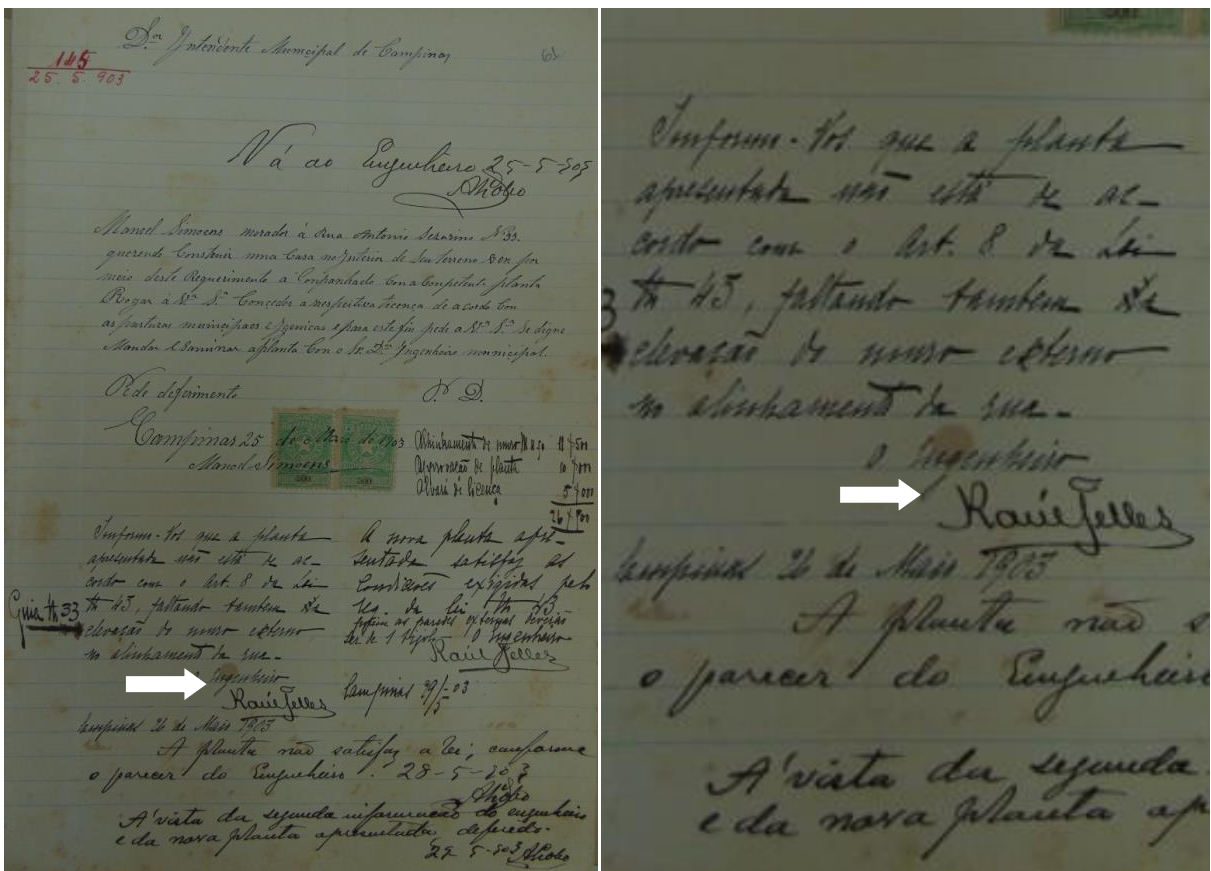 145
25. 5. 903
D.or Intendente Municipal de Campinas
Vá ao Engenheiro 25-5-903
Manoel Simoens morador á Rua Antonio Sesarino N 33.
querendo Construir uma Casa no interior de seu terreno vem por
meio deste Requerimento a Conpanhado Con a Competente planta
Rogar á V.ª S.ª Conceder a respectiva licença de acordo Con
as posturas municipaes e para este fin pede a V.ª S.ª Se digne
Mandar Esaminar a planta Con o Sr. D.r Ingenheiro municipal.
Pede deferimento
P. D.
Campinas 25 de Maio de 1903
Manoel Simoens
500
500
Alinhamento de muro 11$500
Approvação de planta 10$000
Alvará de licença 5$000
26$500
Guia N 33
Informo-Vos que a planta
apresentada não está de ac-
cordo com o Art. 8 da Lei
N 43, faltando tambem a
elevação do muro externo
no alinhamento da rua-
o Engenheiro
Raúl Telles
Campinas 26 de Maio 1903
A nova planta apre-
sentada satisfaz as
Condições exigidas pelo
reg. da lei N 43
porém as paredes externas deverão
ser de 1 tijolo. O Engenheiro
Raúl Telles
Campinas 29/5-03
A planta não satisfaz a lei; conforme
o parecer do Engenheiro. 28-5-903
A' vista da segunda informação do engenheiro
e da nova planta apresentada, defiro.
29-5-903
500
Informo-Vos que a planta
apresentada não está de ac-
cordo com o Art. 8 da Lei
N 43, faltando tambem a
elevação do muro externo
no alinhamento da rua-
o Engenheiro
Raúl Telles
Campinas 26 de Maio 1903
A planta não s
o parecer do Engenheiro
A' vista da segunda
e da nova planta ap